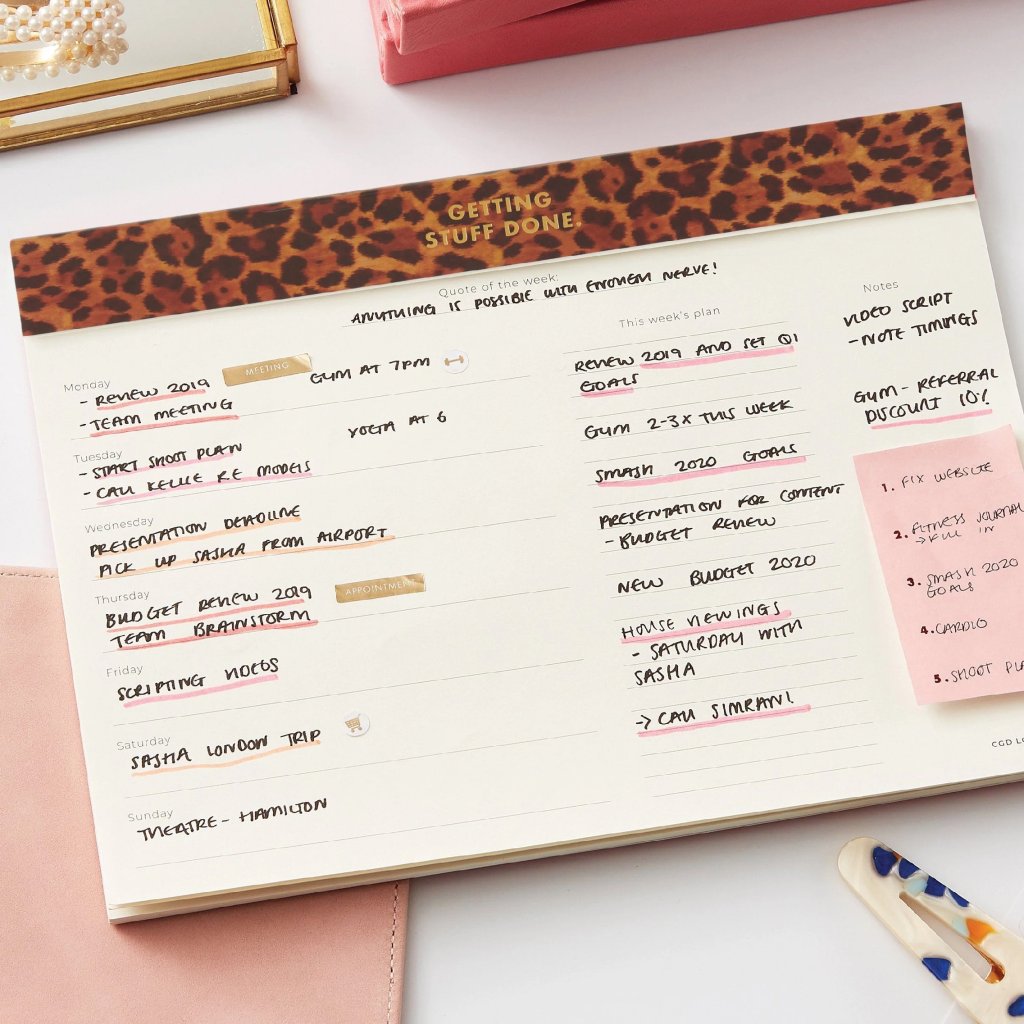 GETTING
STUFF DONE.
Quote of the week:
ANYTHING IS POSSIBLE WITH ENOUGH NERVE!
Monday
- REVIEW 2019
MEETING
GYM AT 7PM
- TEAM MEETING
Tuesday
- START SHOOT PLAN
YOGA AT 6
- CALL KELLIE RE MODELS
Wednesday
PRESENTATION DEADLINE
PICK UP SASHA FROM AIRPORT
Thursday
BUDGET REVIEW 2019
APPOINTMENT
TEAM BRAINSTORM
Friday
SCRIPTING VIDEOS
Saturday
SASHA LONDON TRIP
Sunday
THEATRE - HAMILTON
This week's plan
REVIEW 2019 AND SET Q1
GOALS
GYM 2-3X THIS WEEK
SMASH 2020 GOALS
PRESENTATION FOR CONTENT
- BUDGET REVIEW
NEW BUDGET 2020
HOUSE VIEWINGS
- SATURDAY WITH
SASHA
-> CALL SIMRAN!
Notes
VIDEO SCRIPT
- NOTE TIMINGS
GYM - REFERRAL
DISCOUNT 10%
1. FIX WEBSITE
2. FITNESS JOURNAL
-> FILL IN
3. SMASH 2020
GOALS
4. CARDIO
5. SHOOT PLA
CGD LO